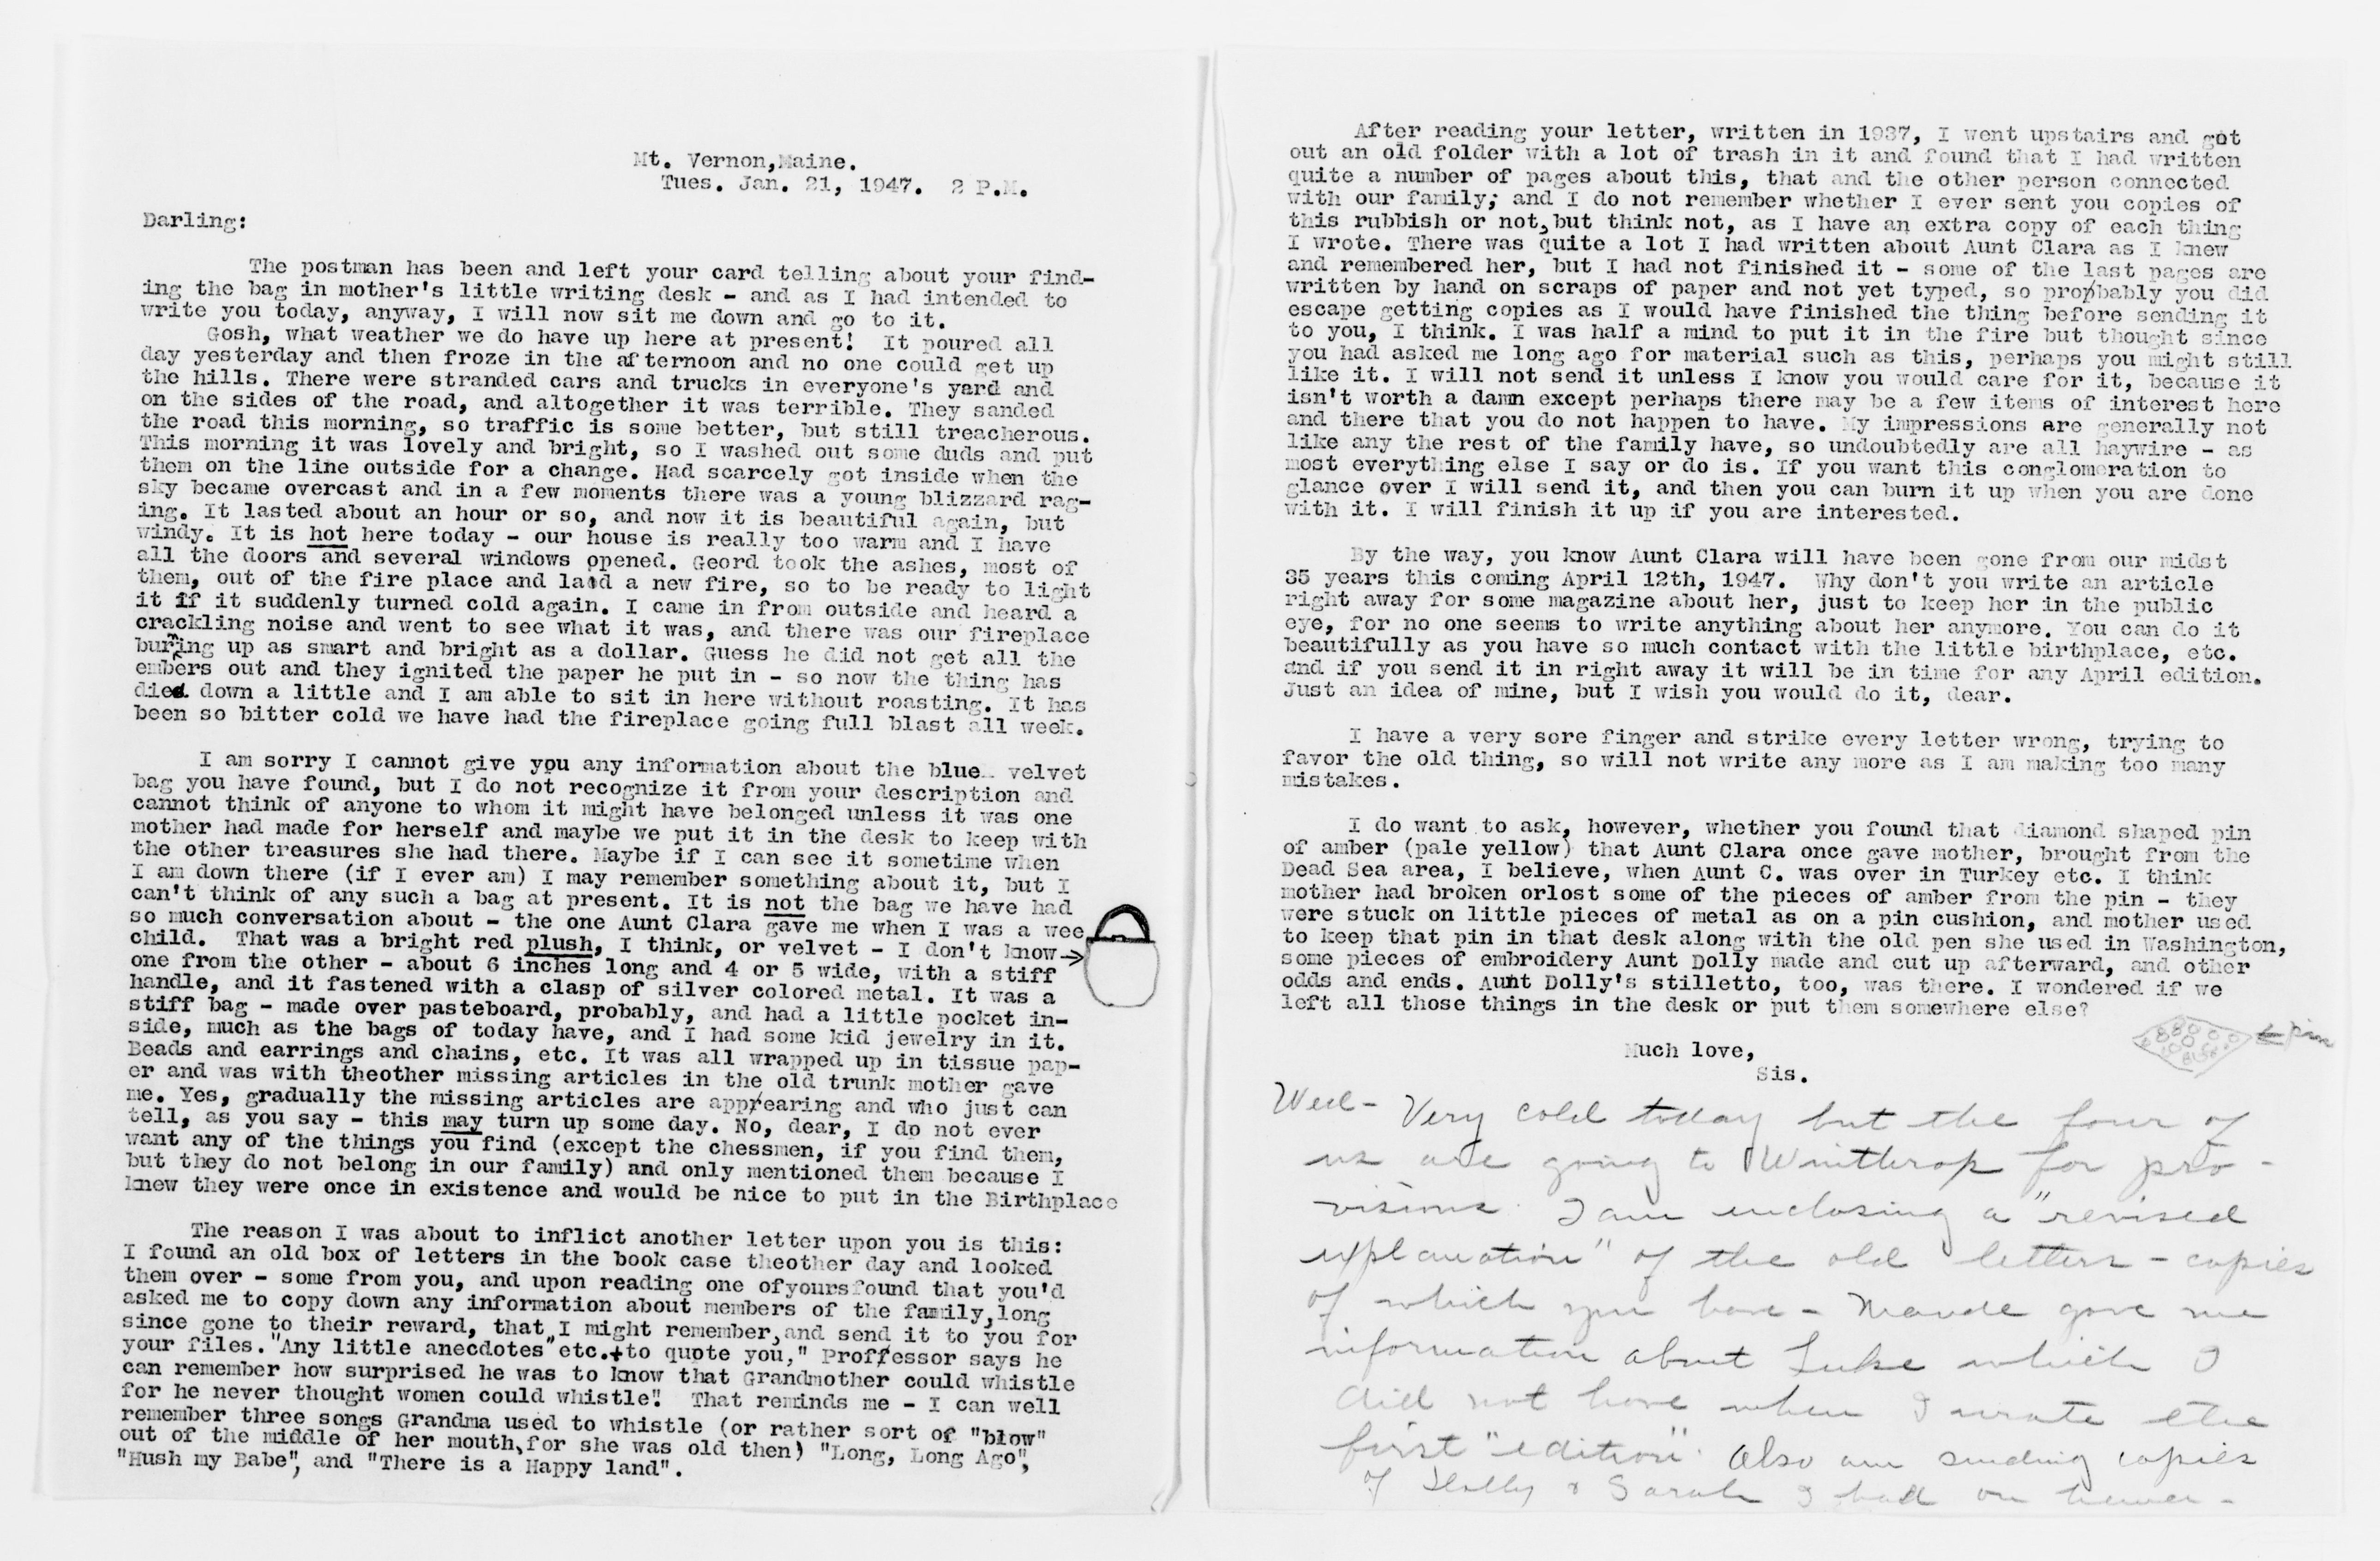 Mt. Vernon,Maine.
Tues. Jan. 21, 1947.  2 P.M.
Darling:
The postman has been and left your card telling about your find-
ing the bag in mother's little writing desk - and as I had intended to
write you today, anyway, I will now sit me down and go to it.
Gosh, what weather we do have up here at present!  It poured all
day yesterday and then froze in the afternoon and no one could get up
the hills. There were stranded cars and trucks in everyone's yard and
on the sides of the road, and altogether it was terrible. They sanded
the road this morning, so traffic is some better, but still treacherous.
This morning it was lovely and bright, so I washed out some duds and put
them on the line outside for a change. Had scarcely got inside when the
sky became overcast and in a few moments there was a young blizzard rag-
ing. It lasted about an hour or so, and now it is beautiful again, but
windy. It is hot here today - our house is really too warm and I have
all the doors and several windows opened. Geord took the ashes, most of
them, out of the fire place and laid a new fire, so to be ready to light
it if it suddenly turned cold again. I came in from outside and heard a
crackling noise and went to see what it was, and there was our fireplace
burning up as smart and bright as a dollar. Guess he did not get all the
embers out and they ignited the paper he put in - so now the thing has
died down a little and I am able to sit in here without roasting. It has
been so bitter cold we have had the fireplace going full blast all week.
I am sorry I cannot give you any information about the blue velvet
bag you have found, but I do not recognize it from your description and
cannot think of anyone to whom it might have belonged unless it was one
mother had made for herself and maybe we put it in the desk to keep with
the other treasures she had there. Maybe if I can see it sometime when
I am down there (if I ever am) I may remember something about it, but I
can't think of any such a bag at present. It is not the bag we have had
so much conversation about - the one Aunt Clara gave me when I was a wee
child.  That was a bright red plush, I think, or velvet - I don't know→
one from the other - about 6 inches long and 4 or 5 wide, with a stiff
handle, and it fastened with a clasp of silver colored metal. It was a
stiff bag - made over pasteboard, probably, and had a little pocket in-
side, much as the bags of today have, and I had some kid jewelry in it.
Beads and earrings and chains, etc. It was all wrapped up in tissue pap-
er and was with theother missing articles in the old trunk mother gave
me. Yes, gradually the missing articles are appearing and who just can
tell, as you say - this may turn up some day. No, dear, I do not ever
want any of the things you find (except the chessmen, if you find them,
but they do not belong in our family) and only mentioned them because I
knew they were once in existence and would be nice to put in the Birthplace
The reason I was about to inflict another letter upon you is this:
I found an old box of letters in the book case theother day and looked
them over - some from you, and upon reading one ofyoursfound that you'd
asked me to copy down any information about members of the family,long
since gone to their reward, that I might remember,and send it to you for
your files."Any little anecdotes" etc.+to quote you," Proffessor says he
can remember how surprised he was to know that Grandmother could whistle
for he never thought women could whistle"!  That reminds me - I can well
remember three songs Grandma used to whistle (or rather sort of "blow"
out of the middle of her mouth,for she was old then) "Long, Long Ago",
"Hush my Babe", and "There is a Happy land".
After reading your letter, written in 1937, I went upstairs and got
out an old folder with a lot of trash in it and found that I had written
quite a number of pages about this, that and the other person connected
with our family; and I do not remember whether I ever sent you copies of
this rubbish or not,but think not, as I have an extra copy of each thing
I wrote. There was quite a lot I had written about Aunt Clara as I knew
and remembered her, but I had not finished it - some of the last pages are
written by hand on scraps of paper and not yet typed, so probably you did
escape getting copies as I would have finished the thing before sending it
to you, I think. I was half a mind to put it in the fire but thought since
you had asked me long ago for material such as this, perhaps you might still
like it. I will not send it unless I know you would care for it, because it
isn't worth a damn except perhaps there may be a few items of interest here
and there that you do not happen to have. My impressions are generally not
like any the rest of the family have, so undoubtedly are all haywire - as
most everything else I say or do is. If you want this conglomeration to
glance over I will send it, and then you can burn it up when you are done
with it. I will finish it up if you are interested.
By the way, you know Aunt Clara will have been gone from our midst
35 years this coming April 12th, 1947.  Why don't you write an article
right away for some magazine about her, just to keep her in the public
eye, for no one seems to write anything about her anymore. You can do it
beautifully as you have so much contact with the little birthplace, etc.
and if you send it in right away it will be in time for any April edition.
Just an idea of mine, but I wish you would do it, dear.
I have a very sore finger and strike every letter wrong, trying to
favor the old thing, so will not write any more as I am making too many
mistakes.
I do want to ask, however, whether you found that diamond shaped pin
of amber (pale yellow) that Aunt Clara once gave mother, brought from the
Dead Sea area, I believe, when Aunt C. was over in Turkey etc. I think
mother had broken orlost some of the pieces of amber from the pin - they
were stuck on little pieces of metal as on a pin cushion, and mother used
to keep that pin in that desk along with the old pen she used in Washington,
some pieces of embroidery Aunt Dolly made and cut up afterward, and other
odds and ends. Aunt Dolly's stilletto, too, was there. I wondered if we
left all those things in the desk or put them somewhere else?
← pin
Much love,
Sis.
Wed - Very cold today but the four of
us are going to Winthrop for pro-
visions. I am enclosing a "revised
explanation" of the old letters - copies
of which you have - Maude gave me
information about Luke which I
did not have when I wrote the
first "edition". Also am sending copies
of Dolly & Sarah I had on